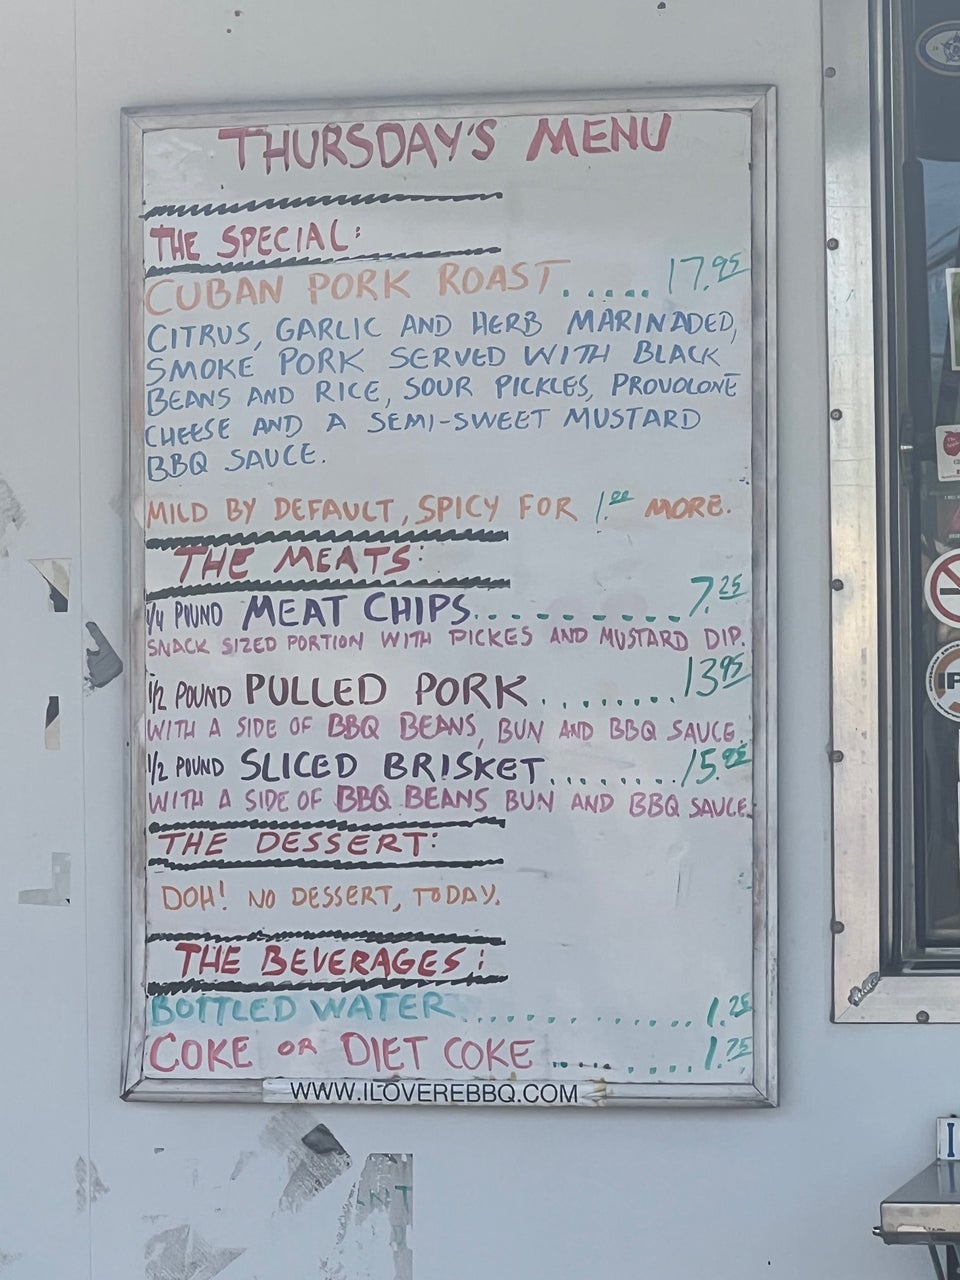 THURSDAY'S MENU
THE SPECIAL:
CUBAN PORK ROAST..... 17.95
CITRUS, GARLIC AND HERB MARINADED,
SMOKE PORK SERVED WITH BLACK
BEANS AND RICE, SOUR PICKLES, PROVOLONE
CHEESE AND A SEMI-SWEET MUSTARD
BBQ SAUCE.
MILD BY DEFAULT, SPICY FOR 1.00 MORE.
THE MEATS:
1/4 POUND MEAT CHIPS.......... 7.25
SNACK SIZED PORTION WITH PICKES AND MUSTARD DIP.
1/2 POUND PULLED PORK........ 13.95
WITH A SIDE OF BBQ BEANS, BUN AND BBQ SAUCE.
1/2 POUND SLICED BRISKET........ 15.95
WITH A SIDE OF BBQ BEANS BUN AND BBQ SAUCE.
THE DESSERT:
DOH! NO DESSERT, TODAY.
THE BEVERAGES:
BOTTLED WATER............... 1.25
COKE OR DIET COKE ......... 1.75
WWW.ILOVEREBBQ.COM